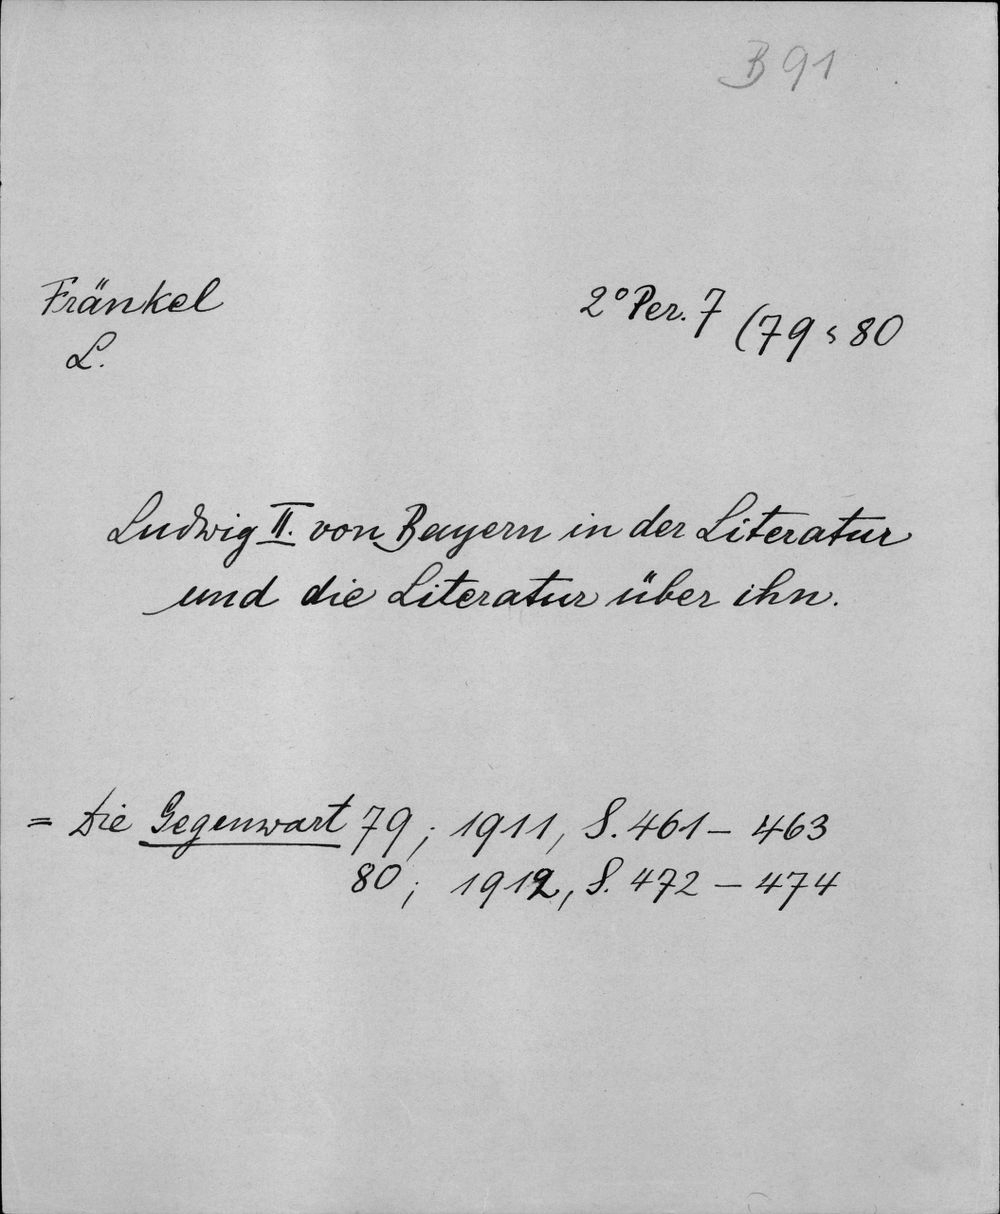 B 91
Fränkel
L.
2° Per. 7 (79 < 80
Ludwig II. von Bayern in der Literatur
und die Literatur über ihn.
= Die Gegenwart 79; 1911, S. 461 – 463
80; 1912, S. 472 – 474